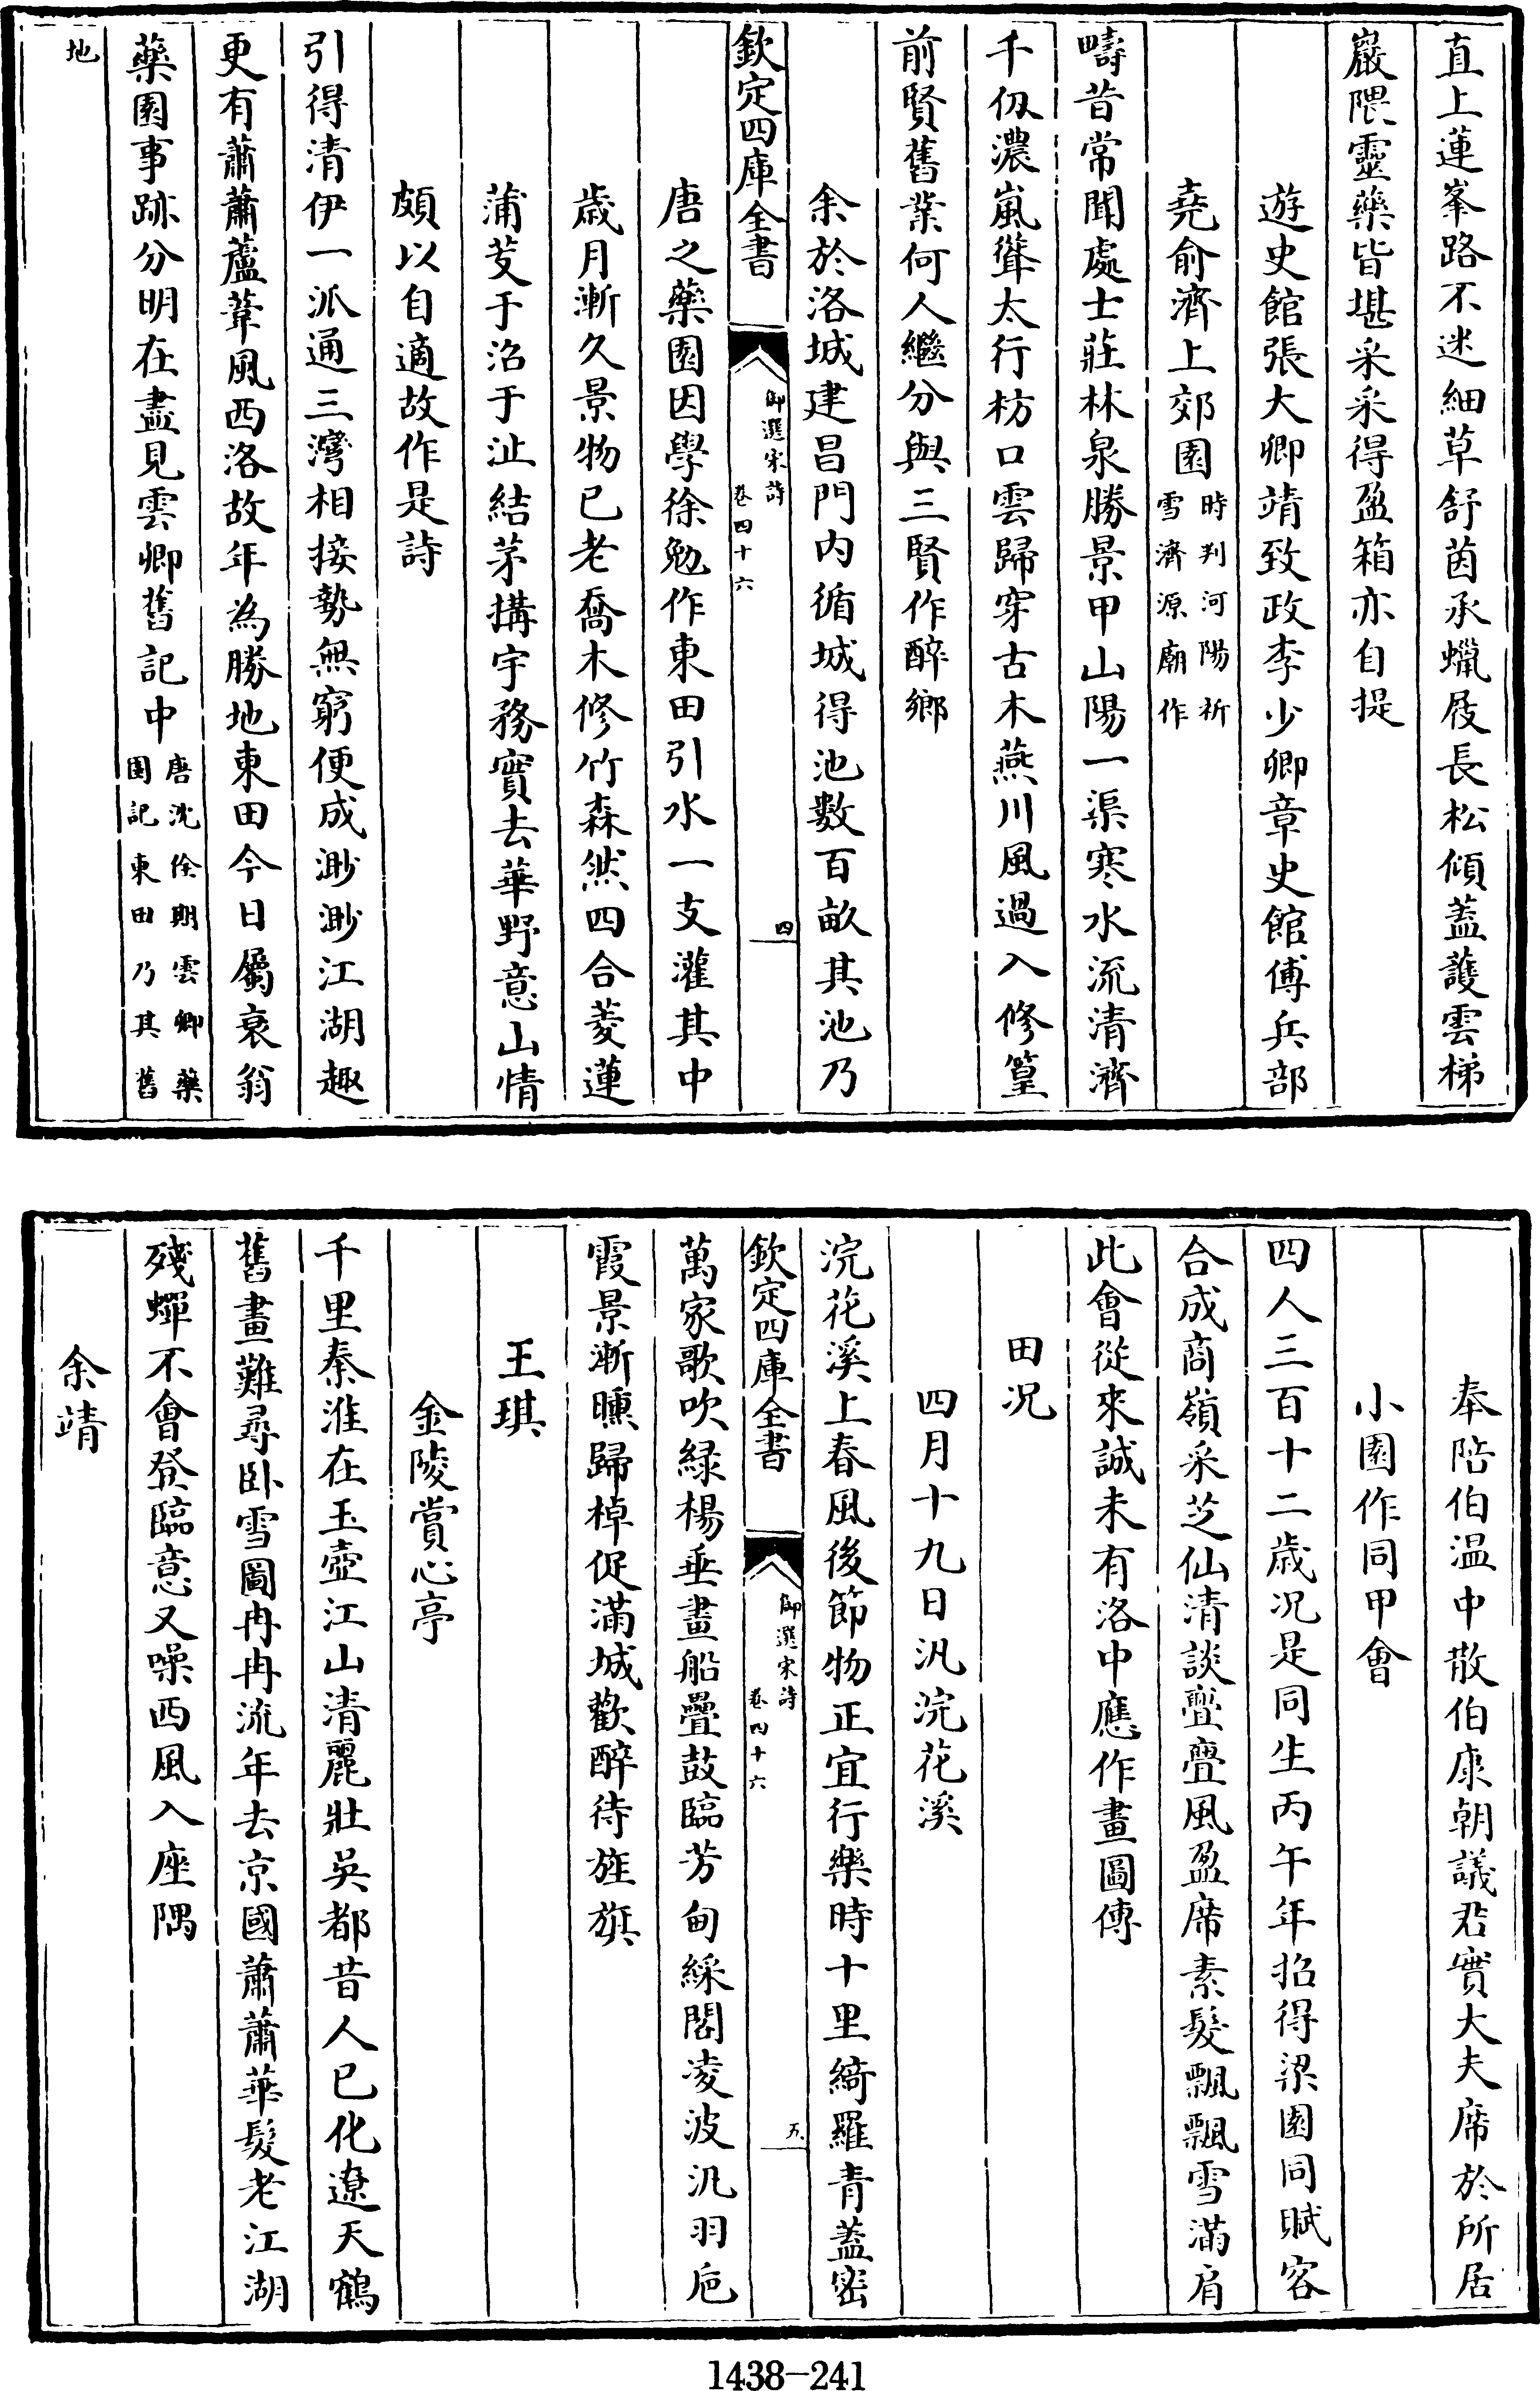 直上蓮峯路不迷細草舒茵承蠟屐長松傾蓋護雲梯
巖隈靈藥皆堪采采得盈箱亦自提
遊史館張大卿靖致政李少卿章史館傅兵部
堯俞濟上郊園時判河陽祈
雪濟源廟作
疇昔常聞處士莊林泉勝景甲山陽一渠寒水流清濟
千仭濃嵐聳太行枋口雲歸穿古木燕川風過入修篁
前賢舊業何人繼分與三賢作醉鄉
余於洛城建昌門内循城得池數百畝其池乃
欽定四庫全書
御選宋詩
卷四十六
四
唐之藥園因學徐勉作東田引水一支灌其中
歲月漸久景物已老喬木修竹森然四合菱蓮
蒲芰于沼于沚結茅搆宇務實去華野意山情
頗以自適故作是詩
引得清伊一派通三灣相接勢無窮便成渺渺江湖趣
更有蕭蕭蘆葦風西洛故年為勝地東田今日屬衰翁
藥園事跡分明在盡見雲卿舊記中唐沈佺期雲卿藥
園記東田乃其舊
地
奉陪伯温中散伯康朝議君實大夫席於所居
小園作同甲會
四人三百十二歲况是同生丙午年招得梁園同賦客
合成商嶺采芝仙清談亹亹風盈席素髮飄飄雪滿肩
此會從來誠未有洛中應作畫圖傳
田况
四月十九日汎浣花溪
浣花溪上春風後節物正宜行樂時十里綺羅青蓋密
欽定四庫全書
御選宋詩
卷四十六
五
萬家歌吹緑楊垂畫船疊鼓臨芳甸綵閣凌波汎羽巵
霞景漸曛歸棹促滿城歡醉待旌旗
王琪
金陵賞心亭
千里秦淮在玉壺江山清麗壯吳都昔人已化遼天鶴
舊畫難尋卧雪圖冉冉流年去京國蕭蕭華髮老江湖
殘蟬不會登臨意又噪西風入座隅
余靖
1438-241